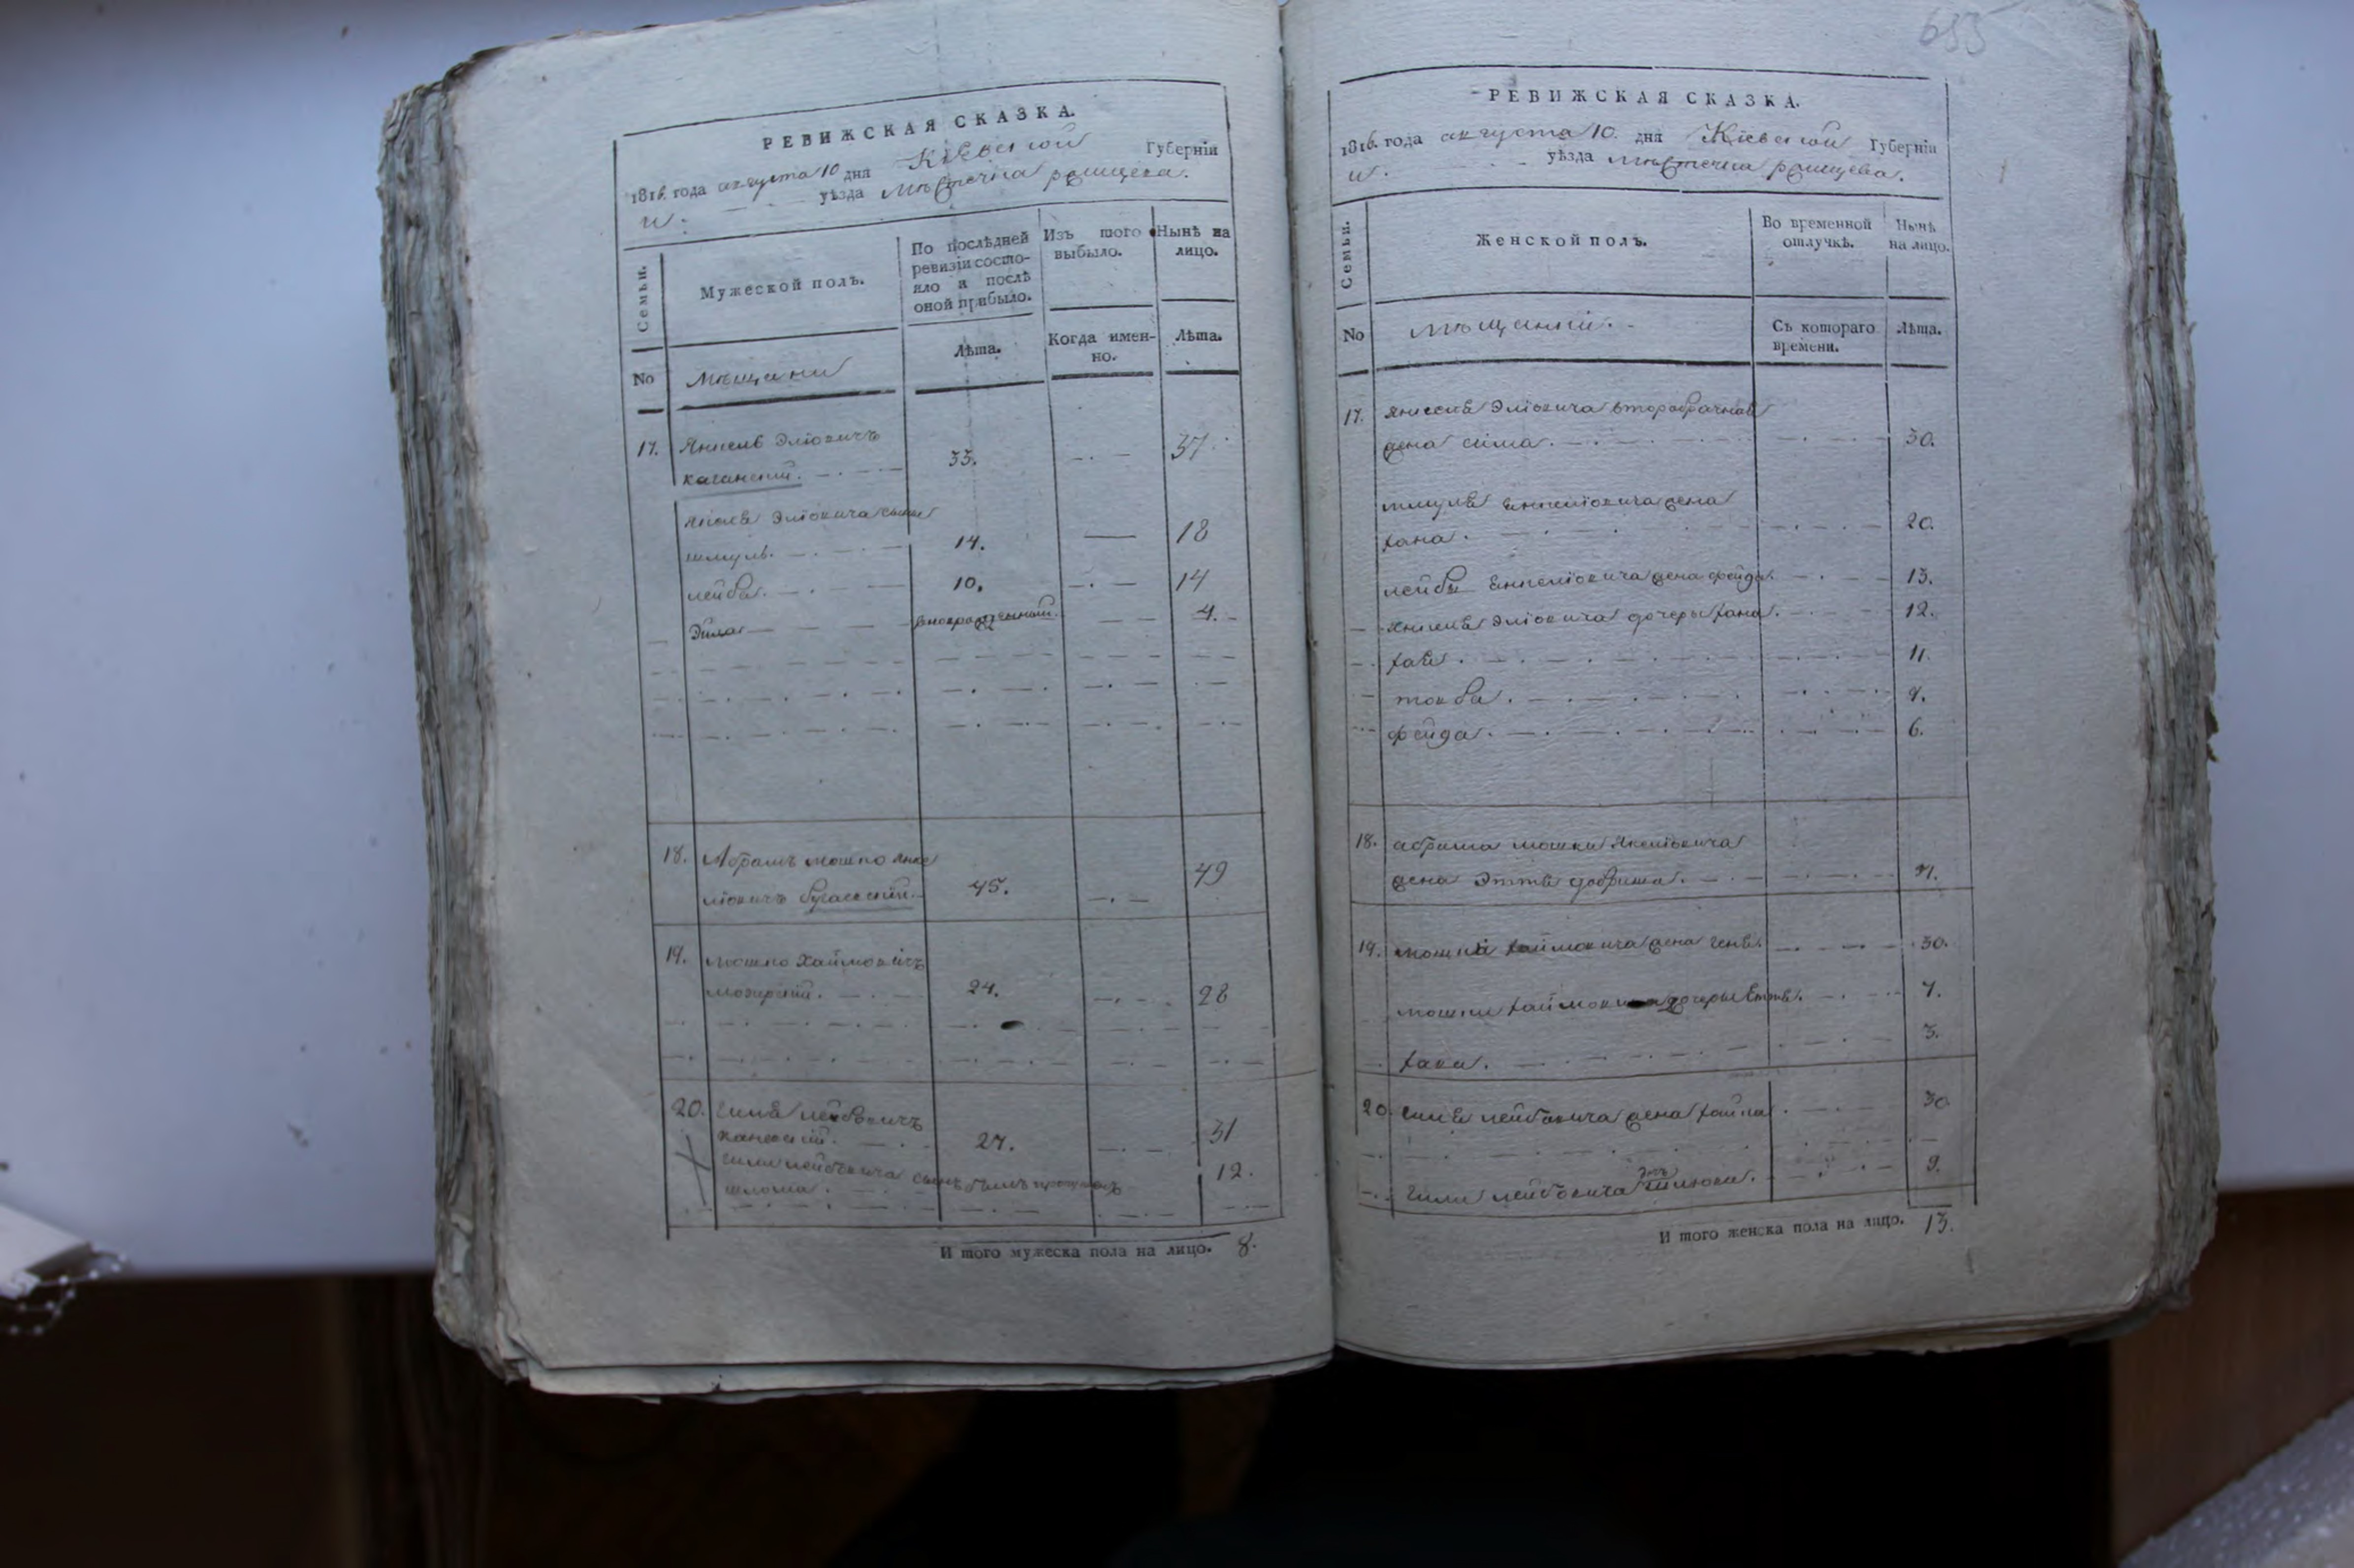 РЕВИЖСКАЯ СКАЗКА.
1816. года августа 10 дня Кіевской Губерніи
и. уѣзда мѣстечка ращева.
Семьи.
Мужеской полъ.
По послѣдней ревизіи состояло а послѣ оной прибыло.
Изъ того выбыло.
Нынѣ на лицо.
No
мѣщани
Лѣта.
Когда именно.
Лѣта.
17. Янкель Эліовичъ
каганский. 33. 37.
янкеля Эліовича сыны
шмуль. 14. 18
лейба. 10. 14
Эйла новорожденный. 4.
18. Абрамъ мошко янке
ліовичъ бугаевский. 45. 49
19. мошко Хаймовичъ
мозирский. 24. 28
20. Лейбовичъ
каневский. 27. 31
лейбовича сынъ былъ
шлома. 12.
И того мужеска пола на лицо. 8.
655
РЕВИЖСКАЯ СКАЗКА.
1816. года августа 10. дня Кіевской Губерніи
и. уѣзда мѣстечка ращева.
Семьи.
Женской полъ.
Во временной отлучкѣ.
Нынѣ на лицо.
No
мѣщанки.
Съ котораго времени.
Лѣта.
17. янкеля Эліовича второбрачная
жена сима. 30.
шмуля янкеліовича жена
хана. 20.
лейбы янкеліовича жена фейда. 13.
янкеля Эліовича дочеры хана. 12.
хая. 11.
товба.
фейда. 6.
18. абрама мошки янкеліовича
жена Этте добриша.
19. мошки хаймовича жена геня. 30.
мошки хаймовича дочеры Етте.
хака. 3.
20. лейбовича жена хайка. 30
лейбовича 9.
И того женска пола на лицо. 13.